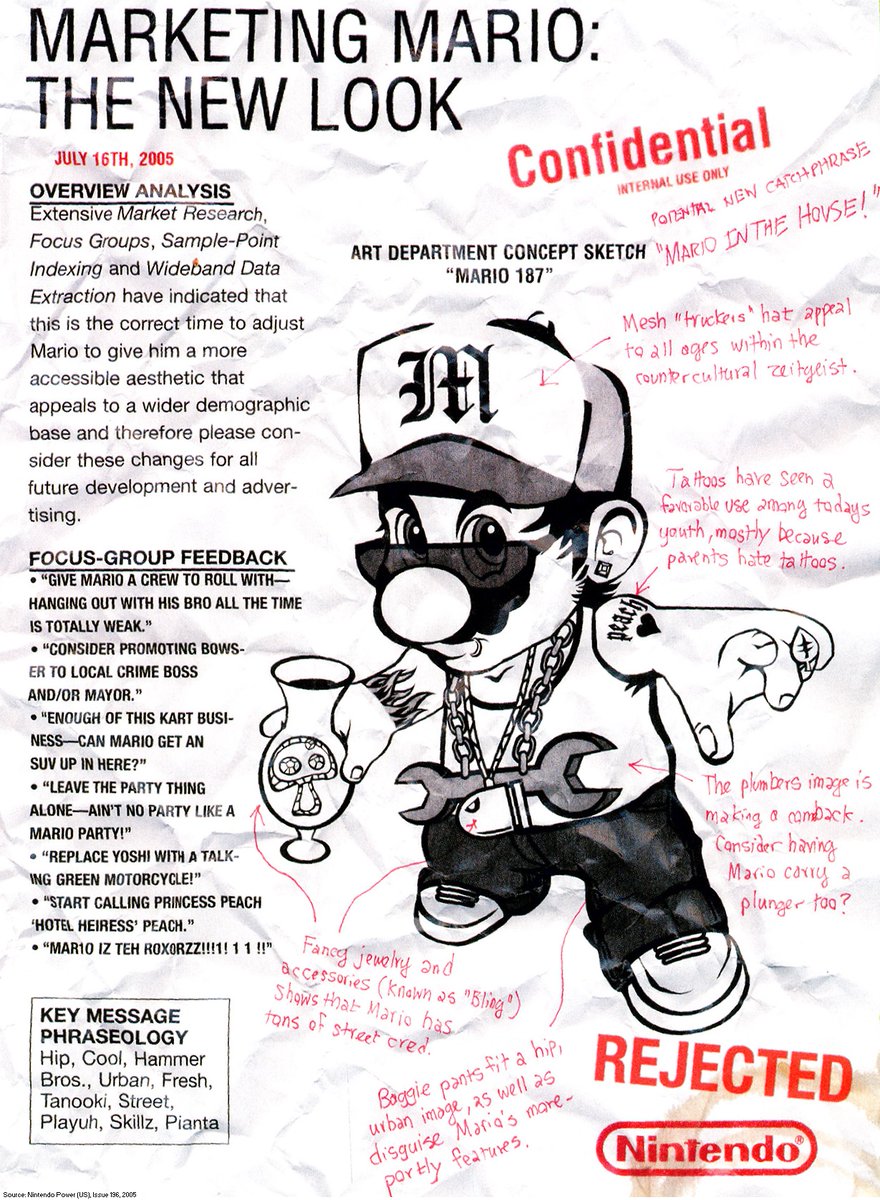 MARKETING MARIO:
THE NEW LOOK
JULY 16TH, 2005
Confidential
INTERNAL USE ONLY
POTENTIAL NEW CATCHPHRASE
"MARIO IN THE HOUSE!"
OVERVIEW ANALYSIS
Extensive Market Research,
Focus Groups, Sample-Point
Indexing and Wideband Data
Extraction have indicated that
this is the correct time to adjust
Mario to give him a more
accessible aesthetic that
appeals to a wider demographic
base and therefore please con-
sider these changes for all
future development and adver-
tising.
ART DEPARTMENT CONCEPT SKETCH
"MARIO 187"
Mesh "truckers" hat appeal
to all ages within the
countercultural zeitgeist.
M
Tattoos have seen a
favorable use among todays
youth, mostly because
parents hate tattoos.
peach
FOCUS-GROUP FEEDBACK
• "GIVE MARIO A CREW TO ROLL WITH—
HANGING OUT WITH HIS BRO ALL THE TIME
IS TOTALLY WEAK."
• "CONSIDER PROMOTING BOWS-
ER TO LOCAL CRIME BOSS
AND/OR MAYOR."
• "ENOUGH OF THIS KART BUSI-
NESS—CAN MARIO GET AN
SUV UP IN HERE?"
• "LEAVE THE PARTY THING
ALONE—AIN'T NO PARTY LIKE A
MARIO PARTY!"
• "REPLACE YOSHI WITH A TALK-
ING GREEN MOTORCYCLE!"
• "START CALLING PRINCESS PEACH
'HOTEL HEIRESS' PEACH."
• "MAR1O IZ TEH ROX0RZZ!!!1! 1 1 !!"
The plumbers image is
making a comback.
Consider having
Mario carry a
plunger too?
Fancy jewelry and
accessories (known as "Bling")
shows that Mario has
tons of street cred.
Baggie pants fit a hip,
urban image, as well as
disguise Mario's more-
portly features.
KEY MESSAGE
PHRASEOLOGY
Hip, Cool, Hammer
Bros., Urban, Fresh,
Tanooki, Street,
Playuh, Skillz, Pianta
REJECTED
Nintendo®
Source: Nintendo Power (US), Issue 196, 2005